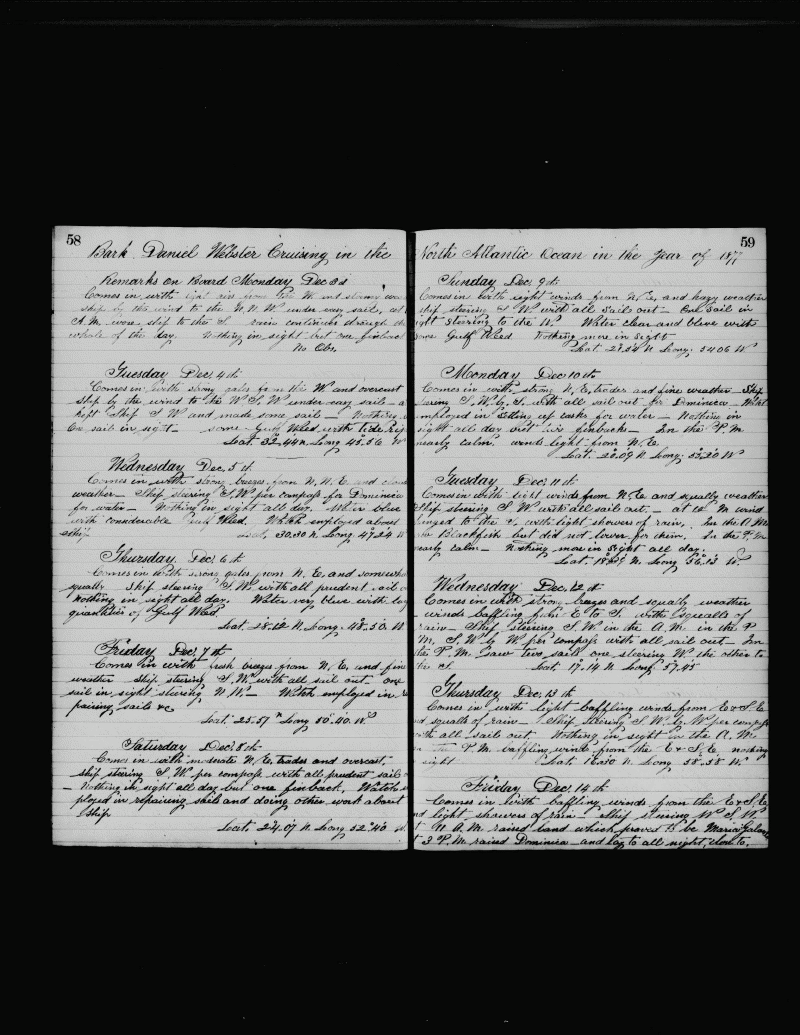 58
Bark Daniel Webster Cruising in the
Remarks on Board Monday Dec 3d
Comes in with from the W and stormy
ship by the wind to the N.N.W. under easy sail, at
A.M. wore ship to the S rain continues through the
whole of the day. Nothing in sight but one finback
No Obs.
Tuesday Dec 4th
Comes in with strong gales from the W and overcast
ship by the wind to the W S, W under easy sail - a
kept ship S W and made some sail - Nothing
One sail in sight - some Gulf Weed with tide rip
Lat 32.44 N. Long 45.56 W
Wednesday Dec, 5th
Comes in with strong breezes from N. N. E and
weather - Ship steering S, W per compass for Dominica
for water - Nothing in sight all day. Water blue
with considerable Gulf Weed. Watch employed about
ship Lat, 30.30 N. Long 47.24 W
Thursday, Dec, 6th
Comes in with strong gales from N. E, and somewhat
squally Ship steering S.W. with all prudent sail
Nothing in sight all day. Water very blue with
quantities of Gulf Weed
Lat 28.12 N. Long, 48.50 W
Friday Dec, 7th
Comes in with fresh breezes from N, E, and fine
weather ship steering S,W. with all sail out - One
sail in sight steering N W. - Watch employed in re
pairing sails &c
Lat. 25.57 N Long 50.40 W
Saturday Dec, 8th
Comes in with moderate N, E, trades and overcast,
ship steering S, W. per compass with all prudent sail
- Nothing in sight all day but one finback. Watch
ployed in repairing sails and doing other work about
Ship
Lat, 24.07 N Long 52.40 W.
59
North Atlantic Ocean in the Year of 1877
Sunday Dec, 9th
Comes in with light winds from N, E, and hazy weather
ship steering S W with all sails out - One sail in
sight steering to the N. Water clear and blue with
some Gulf Weed Nothing more in sight
Lat. Long, 54 06 W
Monday Dec 10th
Comes in with strong N, E, trades and fine weather Ship
S, W, by, S. with all sail out for Dominica - Watch
employed in setting up casks for water - Nothing in
sight all day but two finbacks - In the P.M
nearly calm. winds light from N.E
Lat. 20.09 N. Long. W
Tuesday Dec, 11th
Comes in with light winds from N, E and squally weather
Ship steering S, W with all sail out. - at M wind
to the S, with light showers of rain, In the A M
saw Blackfish but did not lower for them. In the P.M
nearly calm - Nothing more in sight all day.
Lat. N. Long W.
Wednesday Dec, 12th
Comes in with strong breezes and squally weather
- winds baffling from E to S. with squalls of
rain - Ship steering S, W in the A, M. in the P
M, S, W by W per compass with all sail out - In
the P, M. saw two sails one steering W the other to
the S. Lat 17.14 N Long 57.45
Thursday Dec, 13th
Comes in with light baffling winds from E & S. E
and squalls of rain - Ship steering S. W. by W per compass
with all sail out. Nothing in sight in the A, M.
in the P.M. baffling winds from the E & S, E nothing
sight Lat, N, Long 58.58 W
Friday Dec, 14th
Comes in with baffling winds from the E & S, E
and light showers of rain - Ship steering W S W.
A. M. raised land which proved to be Maria Galan
at 3 P.M. raised Dominica - and lay to all night, close to,